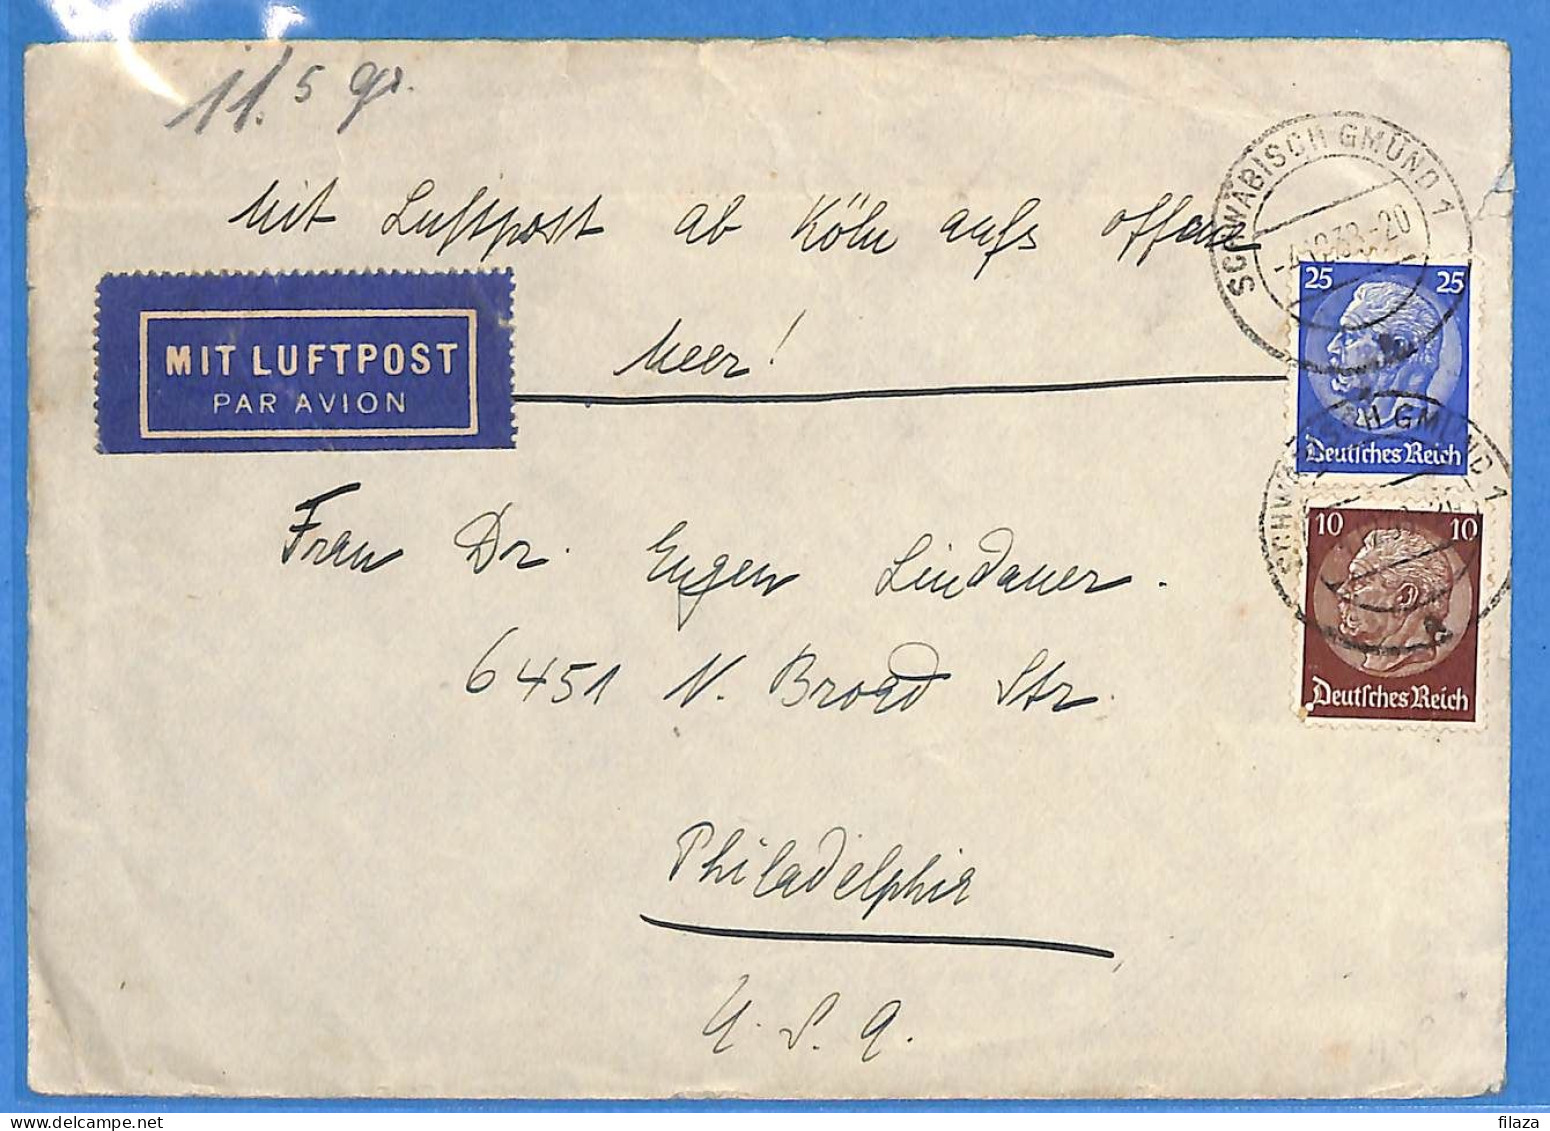 11.5 gr.
Mit Luftpost ab Köln aufs offene
Meer!
MIT LUFTPOST
PAR AVION
SCHWÄBISCH GMÜND 1
25 25
Deutsches Reich
SCHWÄBISCH GMÜND 1
10 10
Deutsches Reich
Frau Dr. Eugen Lindauer.
6451 N. Broad Str.
Philadelphia
U.S.A.
filaza